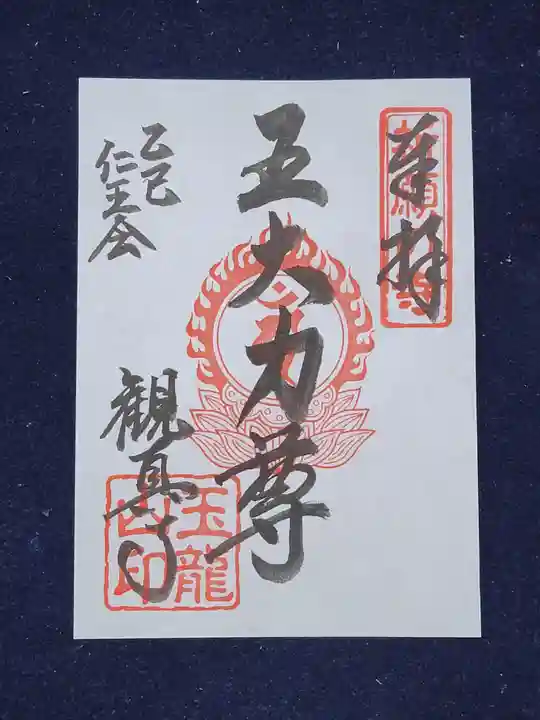 奉拝
五大力尊
乙巳
仁王会
観真寺
玉龍
山印